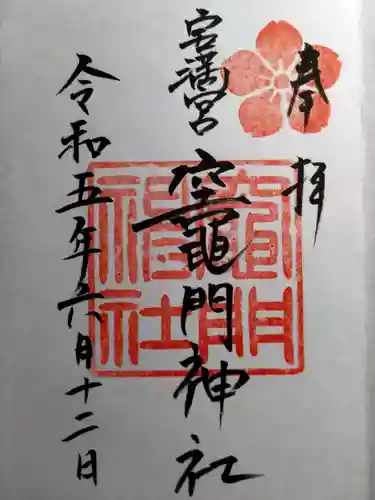 奉拝
宮満宮
竈門神社
竈門神社
令和五年六月十二日